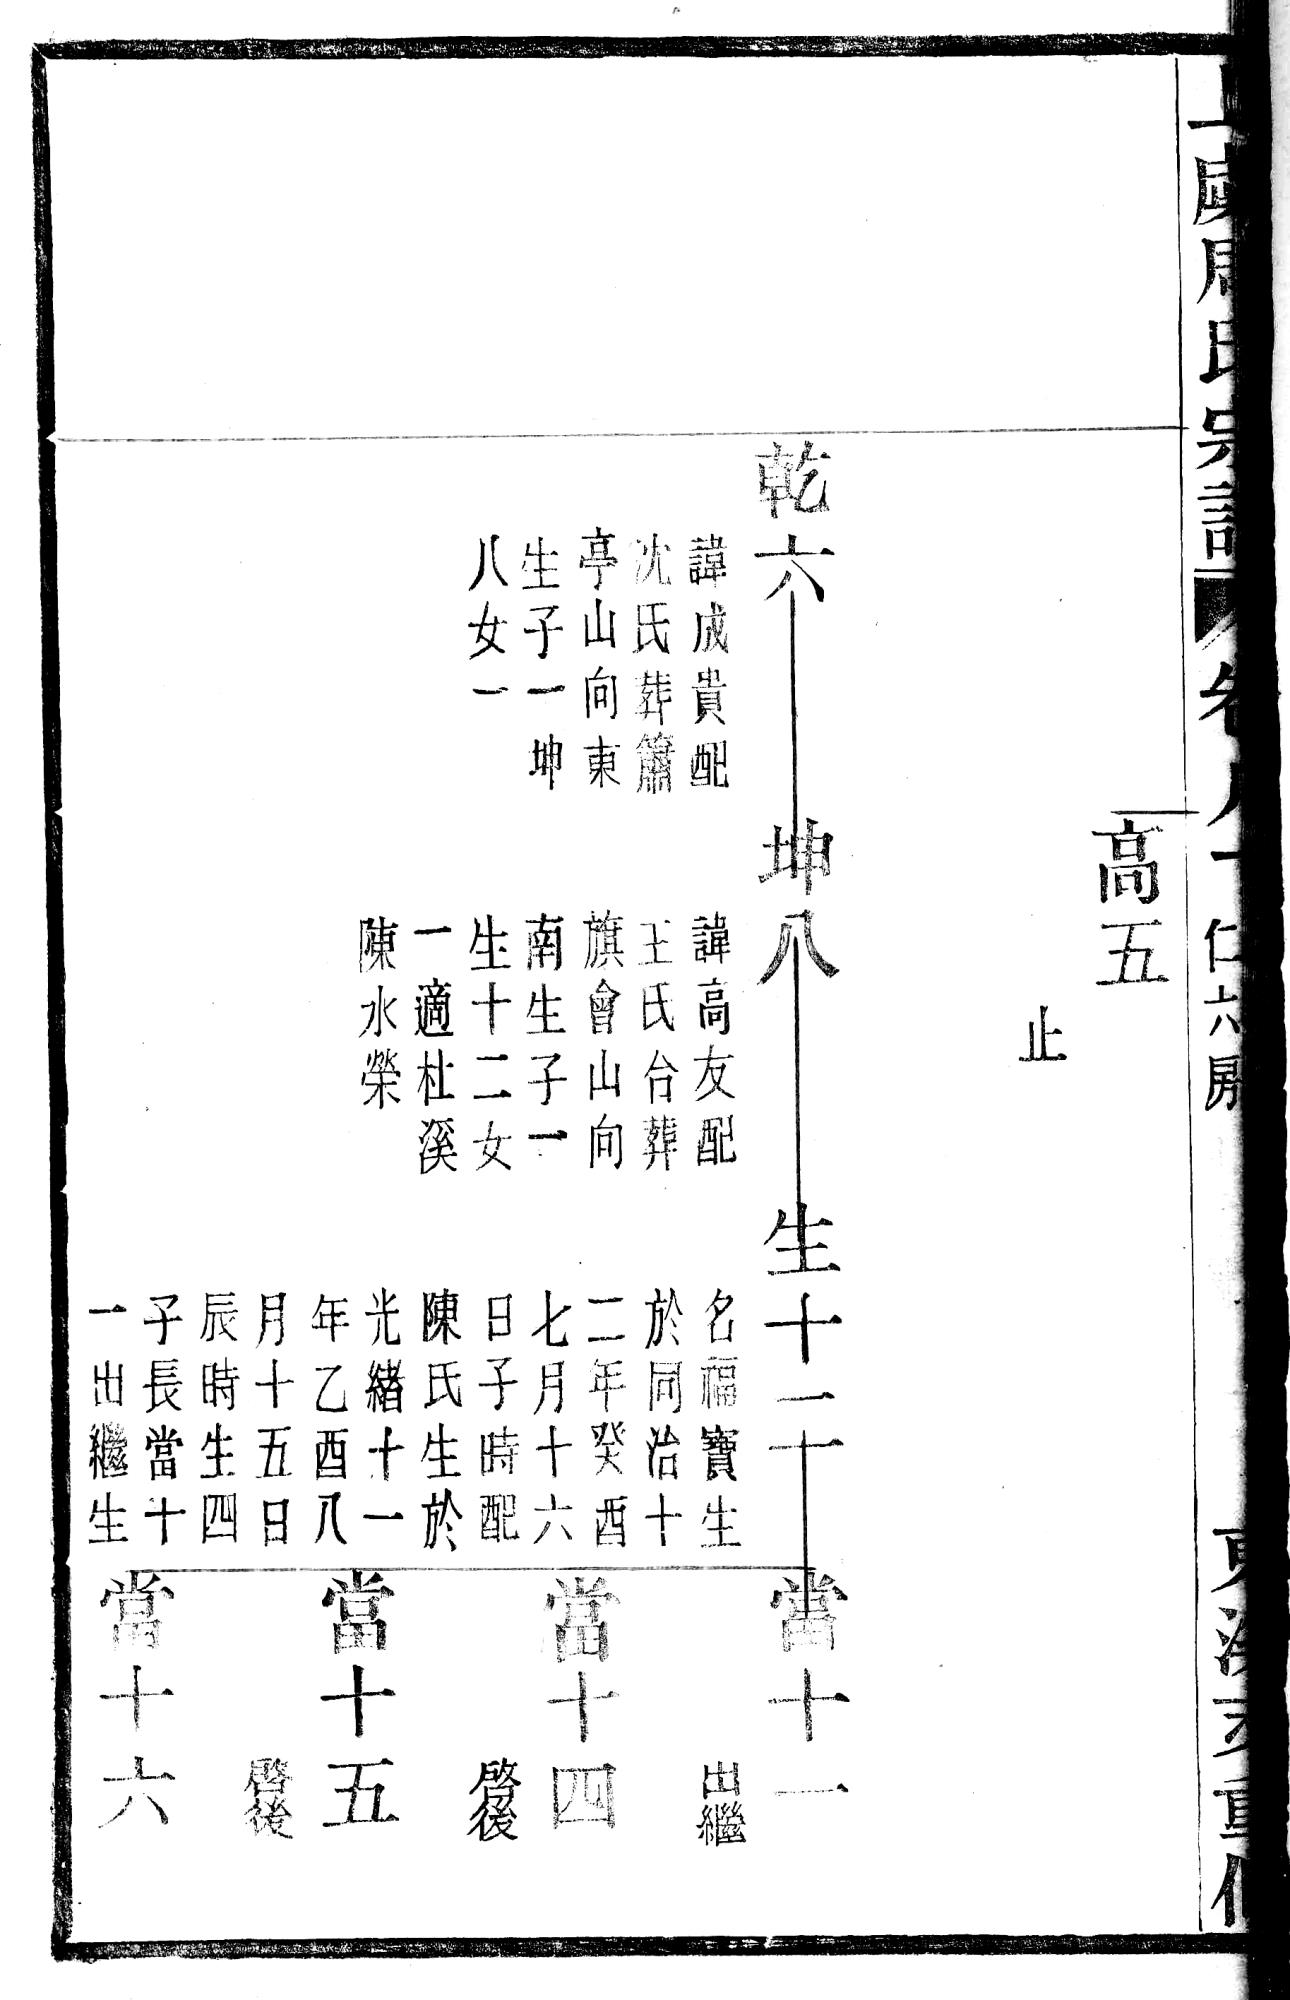 虞周氏宗譜
卷
仁六房
高五
止
乾六
諱成貴配
沈氏葬簫
亭山向東
生子一坤
八女一
坤八
諱高友配
王氏台葬
旗會山向
南生子一
生十二女
一適杜溪
陳水榮
生十二
名福寶生
於同治十
二年癸酉
七月十六
日子時配
陳氏生於
光緒十一
年乙酉八
月十五日
辰時生四
子長當十
一出繼生
當十一
出繼
當十四
啓後
當十五
啓後
當十六